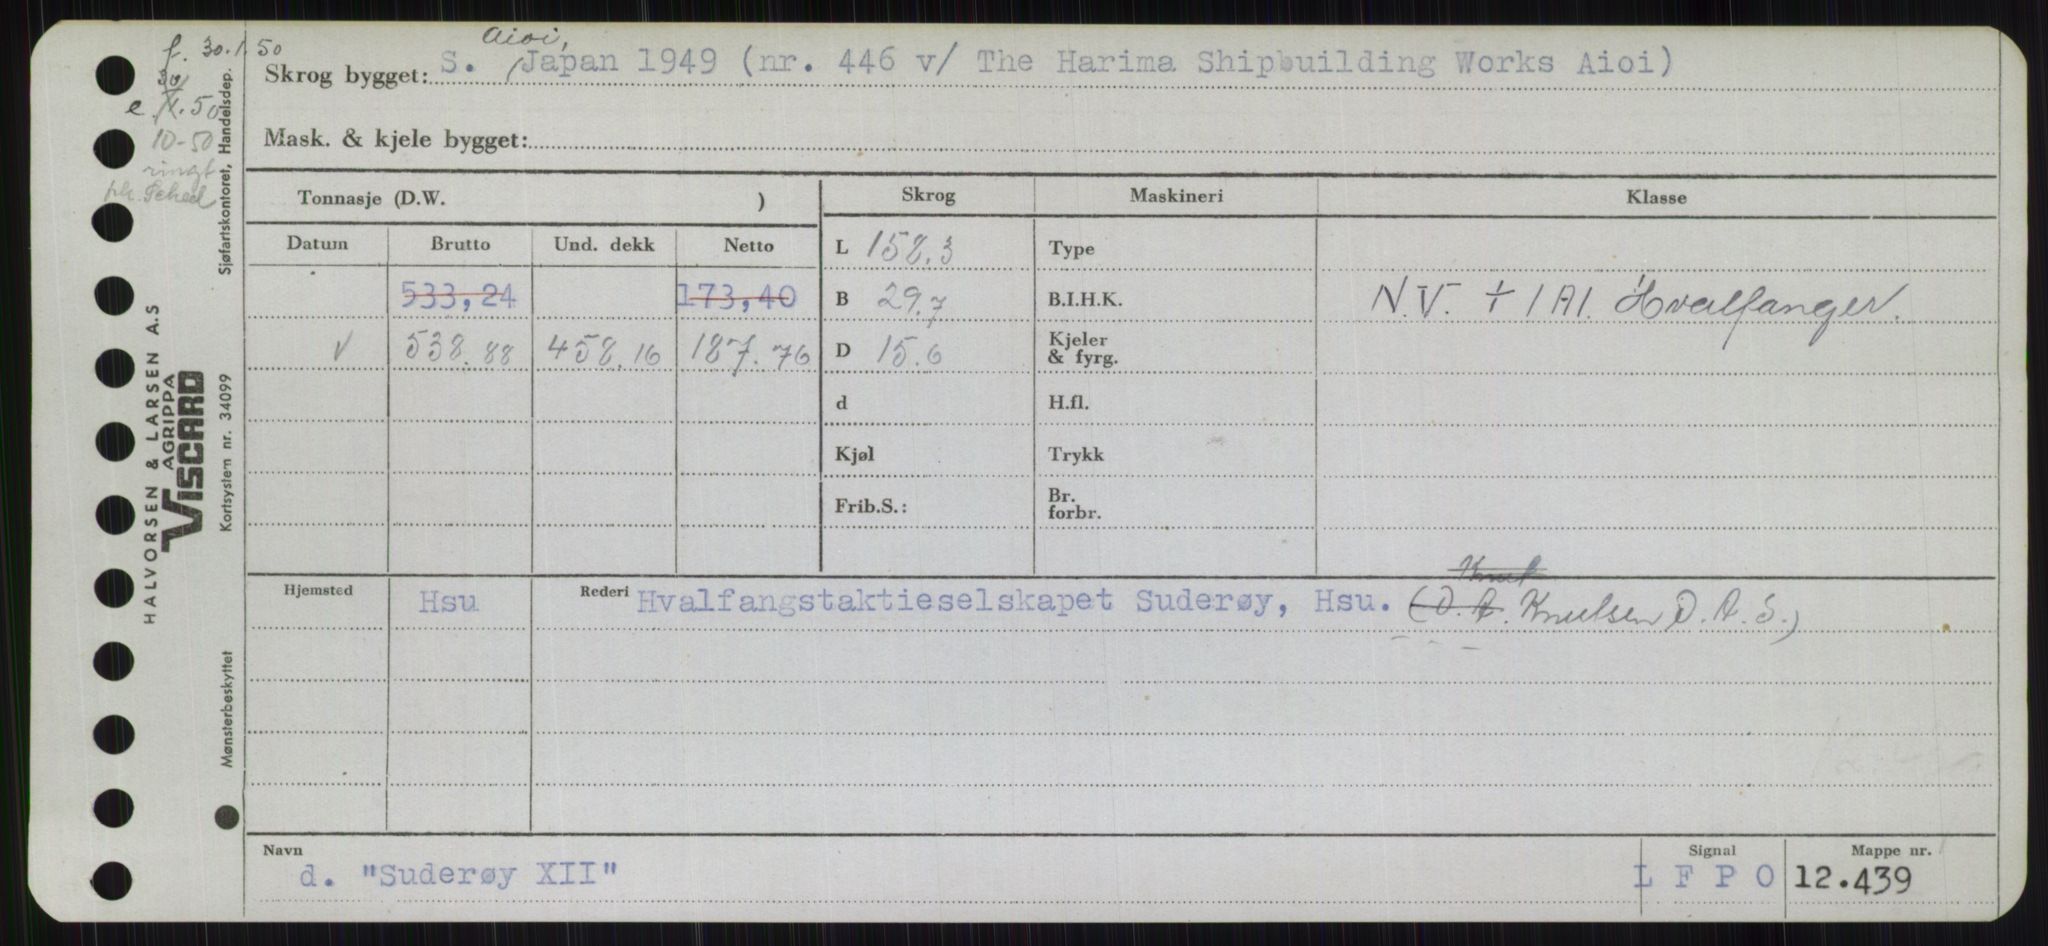 f. 30.1.50
30/
e X.50
10-50
ringt
Sjøfartskontoret, Handelsdep.
HALVORSEN & LARSEN A.S
AGRIPPA
VISCARD
Kortsystem nr. 34099
Mønsterbeskyttet
Aioi,
Skrog bygget: S. / Japan 1949 (nr. 446 v/ The Harima Shipbuilding Works Aioi)
Mask. & kjele bygget:
Tonnasje (D.W. ) Skrog Maskineri Klasse
Datum Brutto Und. dekk Netto L 158.3 Type
533,24 173,40 B 29.7 B.I.H.K. N.V. + 1A1. Hvalfanger.
V 538.88 458.16 187.76 D 15.6 Kjeler & fyrg.
d H.fl.
Kjøl Trykk
Frib.S.: Br. forbr.
Knut
Hjemsted Hsu Rederi Hvalfangstaktieselskapet Suderøy, Hsu. (O. A. Knutsen O.A.S.)
Navn Signal Mappe nr.
d. "Suderøy XII" L F P O 12.439